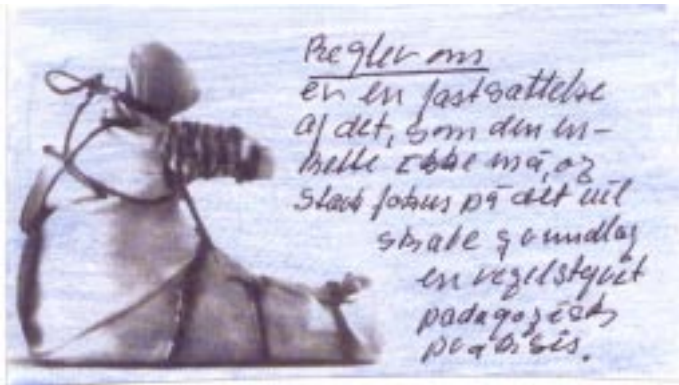 Regler om
er en fastsættelse
af det, som den en-
kelte ikke må, og
stærk fokus på det vil
skabe grundlag
en regelstyret
pædagogisk
praksis.